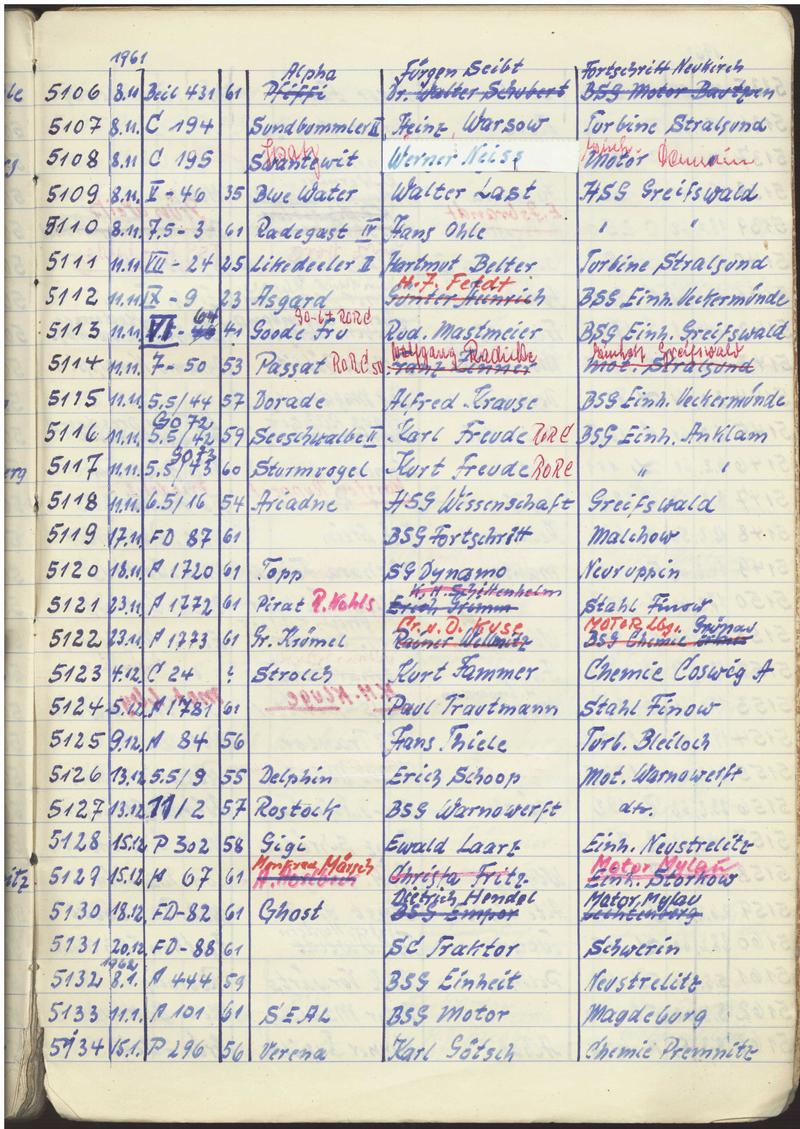 1961
Alpha Jürgen Seibt Fortschritt Neukirch
5106 8.11. Beil 431 61 Pfeffi Dr. Walter Schubert BSG Motor Bautzen
5107 8.11. C 194 Sundbummler II Heinz Warsow Turbine Stralsund
5108 8.11. C 195 Swantewit Werner Neiss Motor
5109 8.11. V - 46 35 Blue Water Walter Last HSG Greifswald
5110 8.11. 7,5 - 3 61 Radegast IV Hans Ohle " "
5111 11.11. VII - 24 25 Likedeeler II Hartmut Belter Turbine Stralsund
H.-J. Feldt
5112 11.11. IX - 9 23 Asgard Günter Heinrich BSG Einh. Ueckermünde
64 RORC
5113 11.11. VI - 41 Goode Fru Rud. Mastmeier BSG Einh. Greifswald
Wolfgang Radicke Greifswald
5114 11.11. 7 - 50 53 Passat RORC 50 Franz Zenner Mot. Stralsund
5115 11.11. 5.5/44 57 Dorade Alfred Krause BSG Einh. Ueckermünde
GO 72
5116 11.11. 5.5/42 59 Seeschwalbe II Karl Freude RORC BSG Einh. Anklam
GO 73
5117 11.11. 5.5/43 60 Sturmvogel Kurt Freude RORC " "
5118 11.11. 6.5/16 54 Ariadne HSG Wissenschaft Greifswald
5119 17.11. FD 87 61 BSG Fortschritt Malchow
5120 18.11. A 1720 61 Topp SG Dynamo Neuruppin
K.H. Schittenhelm
5121 23.11. A 1772 61 Pirat R. Wahls Erich Grimm Stahl Finow
Fr. u. D. Kuse MOTOR Lbg. Grünau
5122 23.11. A 1773 61 Gr. Krümel Rainer Wellnitz BSG Chemie
5123 4.12. C 24 ? Strolch Kurt Fammer Chemie Coswig A
5124 5.12. A 1781 61 Paul Trautmann Stahl Finow
5125 9.12. A 84 56 Hans Thiele Turb. Bleiloch
5126 13.12. 5.5/9 55 Delphin Erich Schoop Mot. Warnowerft
5127 13.12. 11/2 57 Rostock BSG Warnowerft dto.
5128 15.12. P 302 58 Gigi Ewald Laarz Einh. Neustrelitz
Manfred Märsch Motor Mylau
5129 15.12. A 67 61 Christa Fritz Einh. Storkow
Dietrich Hendel Motor Mylau
5130 18.12. FD-82 61 Ghost BSG Empor Lichtenberg
5131 20.12. FD-88 61 SC Traktor Schwerin
1962
5132 8.1. A 444 59 BSG Einheit Neustrelitz
5133 11.1. A 101 61 SEAL BSG Motor Magdeburg
5134 15.1. P 296 56 Verena Karl Götsch Chemie Premnitz